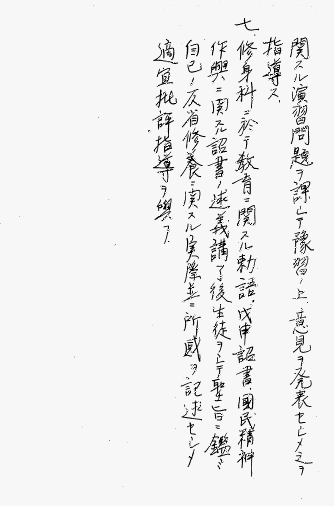 関スル演習問題ヲ課シテ豫習ノ上意見ヲ発表セシメ之ヲ
指導ス
七、修身科ニ於テ教育ニ関スル勅語、戊申詔書、國民精神
作興ニ関スル詔書ノ述義講了後生徒ヲシテ聖旨ニ鑑ミ
自己ノ反省修養ニ関スル実際並ニ所感ヲ記述セシメ
適宜批評指導ヲ與フ